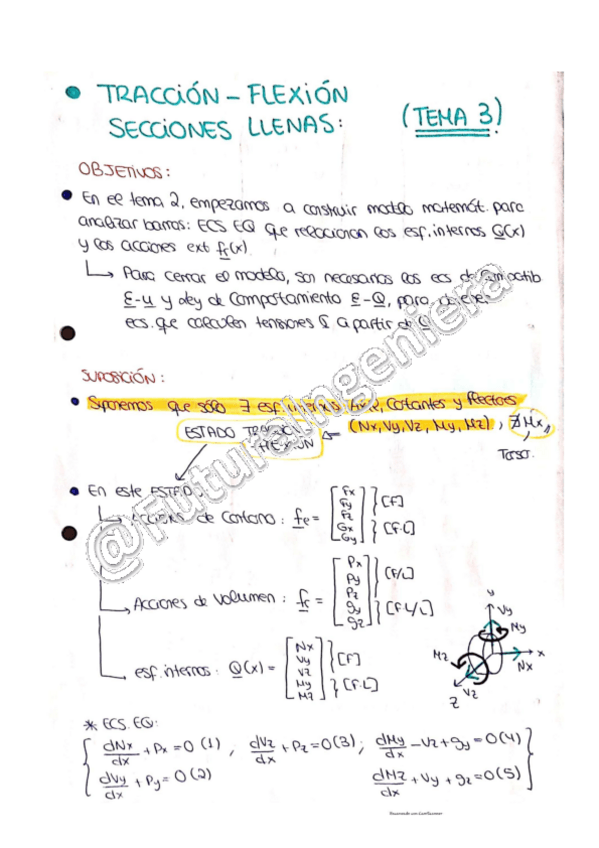 • TRACCIÓN - FLEXIÓN
SECCIONES LLENAS: (TEMA 3)
OBJETIVOS:
• En el tema 2, empezamos a construir modelo matemát. para
analizar barras: ECS EQ que relacionan los esf. internos Q(x)
y las acciones ext f(x).
Para cerrar el modelo, son necesarias las ecs de
E-u y ley de comportamiento E-Q, para
ecs. que calculen tensiones a partir de
SUPOSICIÓN:
• Suponemos que sólo ∃ esf. Cortantes y flectores
ESTADO TRACCIÓN - FLEXIÓN ⇐ (Nx, Vy, Vz, My, Mz), ∄ Mx,
Torsor.
• En este ESTADO:
ACCIONES de Contorno: fc = [Fx Fy Fz Gx Gy] } [F] } [F·L]
Acciones de volumen: fs = [Px Py Pz gy gz] } [F/L] } [F·L/L]
esf. internos: Q(x) = [Nx Vy Vz My Mz] } [F] } [F·L]
y Vy My Mz x Nx Vz z
* ECS. EQ:
dNx/dx + Px = 0 (1), dVz/dx + Pz = 0 (3); dMy/dx - Vz + gy = 0 (4)
dVy/dx + Py = 0 (2) dMz/dx + Vy + gz = 0 (5)
@FuturaIngeniera
Escaneado con CamScanner